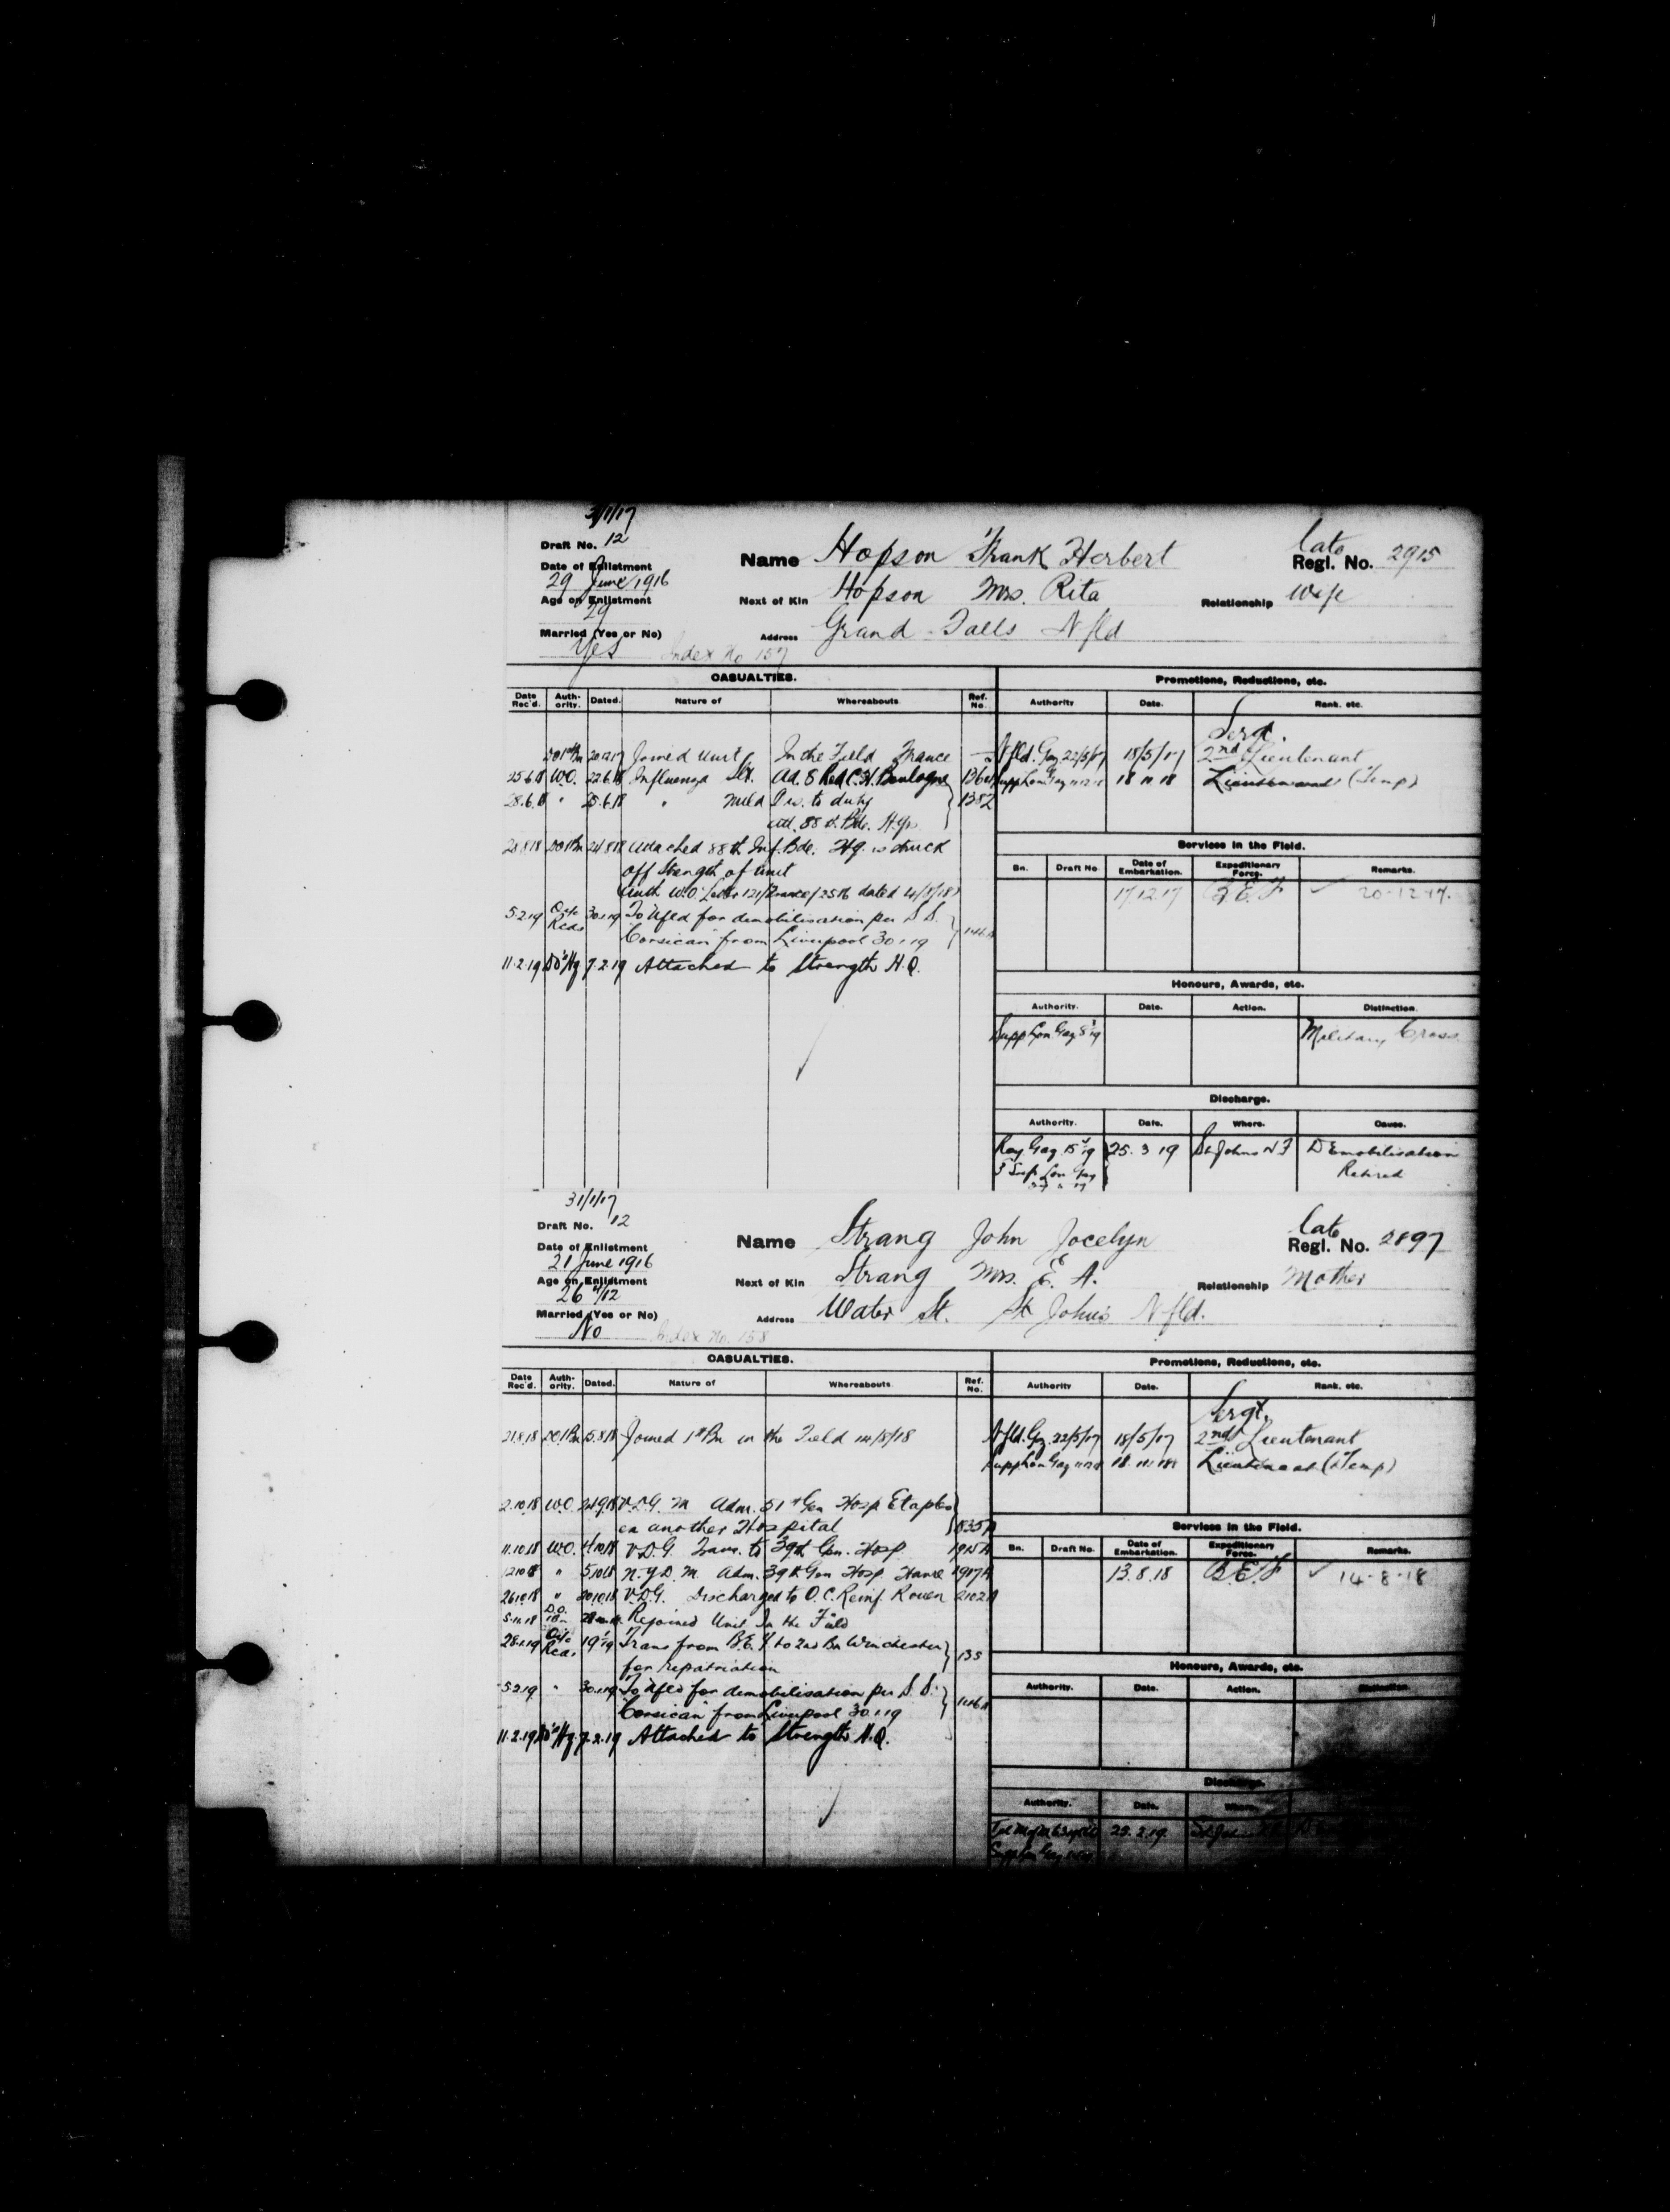 31/1/17
Draft No. 12
Date of Enlistment
29 June 1916
Age on Enlistment
29
Married (Yes or No)
Yes
Index No 157
Name Hopson Frank Herbert
late
Regl. No. 2915
Next of Kin Hopson Mrs. Rita
Relationship Wife
Address Grand Falls Nfld
CASUALTIES.
Date Rec'd. Auth-ority. Dated. Nature of Whereabouts Ref. No.
Joined Unit In the Field France
25.6.18 W.O. 22.6.18 Influenza Slt. Ad. 8 Red C. H. Boulogne
28.6.18 " 25.6.18 " Mild Dis. to duty 1382
att. 88th Bde. Hqrs
Attached 88th Inf. Bde. Hq. is struck
off Strength of Unit
Auth W.O. Letter 121/France/2516 dated
5.2.19 Offc Recds 30.1.19 To Nfld for demobilisation per S.S.
"Corsican" from Liverpool 30.1.19
11.2.19 DO Hq 7.2.19 Attached to Strength H.Q.
Promotions, Reductions, etc.
Authority Date. Rank, etc.
Sergt.
Nfld. Gaz 22/5/17 18/5/17 2nd Lieutenant
Supp Lon Gaz 18.11.18 Lieutenant (Temp)
Services in the Field.
Bn. Draft No Date of Embarkation. Expeditionary Force. Remarks.
17.12.17 B.E.F ✓ 20-12-17.
Honours, Awards, etc.
Authority. Date. Action. Distinction.
Supp Lon Gaz Military Cross
Discharge.
Authority. Date. Where. Cause.
25.3.19 St Johns NF Demobilisation
Retired
31/1/17
Draft No. 12
Date of Enlistment
21 June 1916
Age on Enlistment
26
Married (Yes or No)
No
Index No. 158
Name Strang John Jocelyn
late
Regl. No. 2897
Next of Kin Strang Mrs. E. A.
Relationship Mother
Address Water St. St John's Nfld.
CASUALTIES.
Date Rec'd. Auth-ority. Dated. Nature of Whereabouts Ref. No.
21.8.18 DO1Bn 15.8.18 Joined 1st Bn in the Field 14/8/18
2.10.18 W.O. V.D.G. M Adm. 51st Gen Hosp Etaples
ex another Hospital
11.10.18 W.O. V.D.G. Trans. to 39th Gen. Hosp 1915A
" 5.10.18 N.Y.D. M. Adm. 39th Gen Hosp Havre 1917A
26.10.18 " 20.10.18 V.D.G. Discharged to O.C. Reinf. Rouen 2102A
5.11.18 D.O. 1Bn Rejoined Unit In the Field
28.1.19 Offc Recds Trans from B.E.F to 2nd Bn Winchester 135
for repatriation
5.2.19 " 30.1.19 To Nfld for demobilisation per S.S. 146A
"Corsican" from Liverpool 30.1.19
11.2.19 DO Hq 7.2.19 Attached to Strength H.Q.
Promotions, Reductions, etc.
Authority Date. Rank, etc.
Sergt.
Nfld. Gaz. 22/5/17 18/5/17 2nd Lieutenant
Supp Lon Gaz 18.11.18 Lieutenant (Temp)
Services in the Field.
Bn. Draft No. Date of Embarkation. Expeditionary Force. Remarks.
13.8.18 B.E.F ✓ 14-8-18
Honours, Awards, etc.
Authority. Date. Action. Distinction.
Discharge.
Authority. Date. Where.